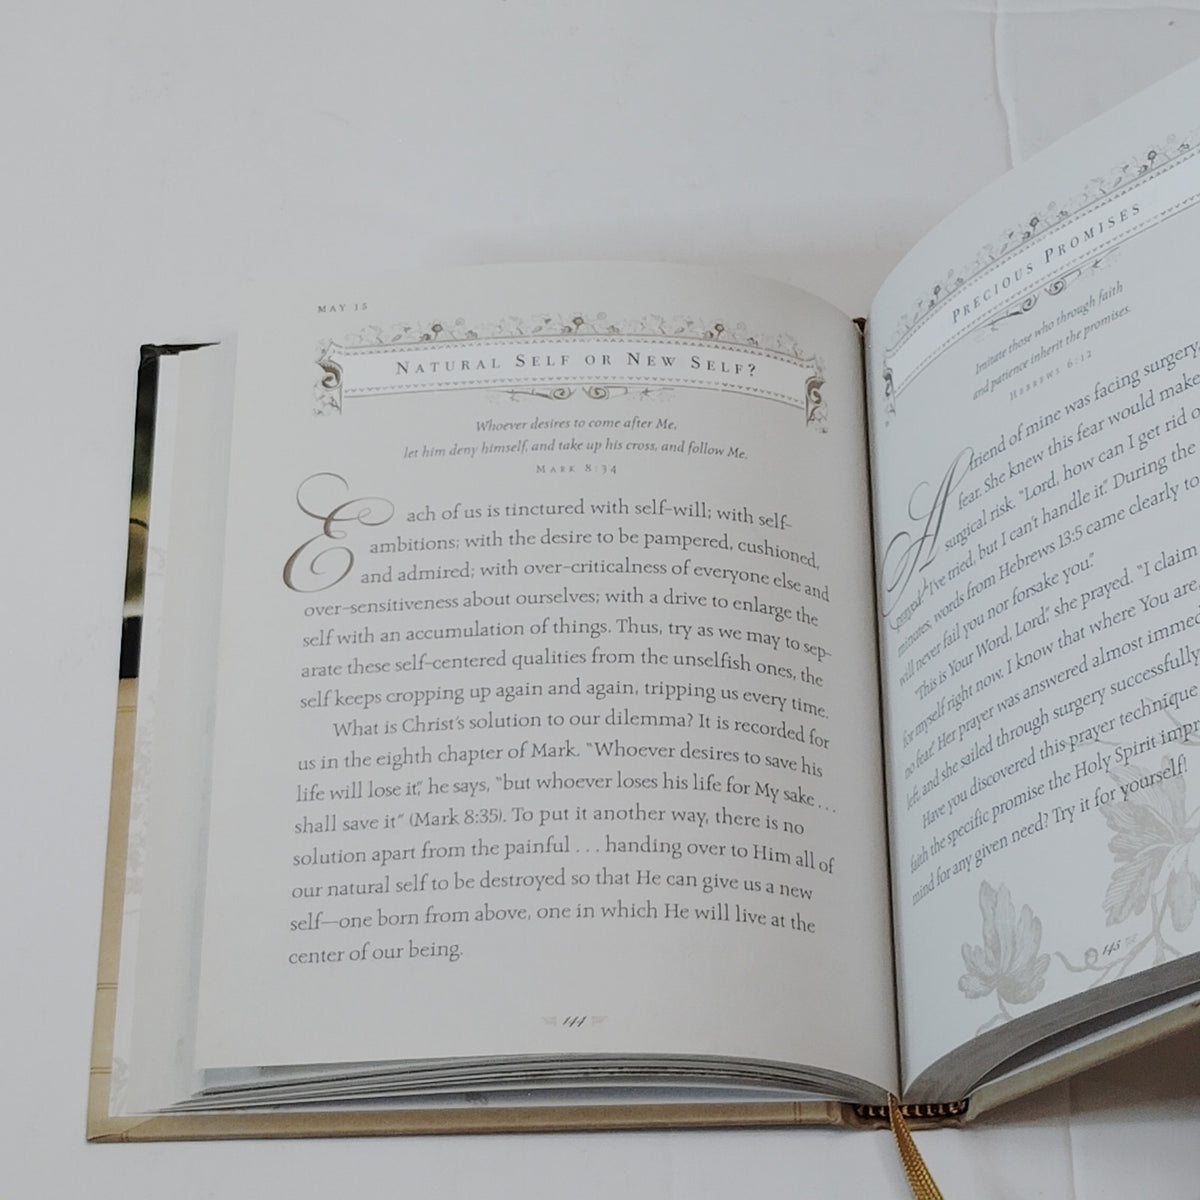 MAY 15
NATURAL SELF OR NEW SELF?
Whoever desires to come after Me,
let him deny himself, and take up his cross, and follow Me.
MARK 8:34
Each of us is tinctured with self-will; with self-
ambitions; with the desire to be pampered, cushioned,
and admired; with over-criticalness of everyone else and
over-sensitiveness about ourselves; with a drive to enlarge the
self with an accumulation of things. Thus, try as we may to sep-
arate these self-centered qualities from the unselfish ones, the
self keeps cropping up again and again, tripping us every time.
What is Christ's solution to our dilemma? It is recorded for
us in the eighth chapter of Mark. "Whoever desires to save his
life will lose it," he says, "but whoever loses his life for My sake . . .
shall save it" (Mark 8:35). To put it another way, there is no
solution apart from the painful . . . handing over to Him all of
our natural self to be destroyed so that He can give us a new
self—one born from above, one in which He will live at the
center of our being.
144
PRECIOUS PROMISES
Imitate those who through faith
and patience inherit the promises.
HEBREWS 6:12
A friend of mine was facing surgery
fear. She knew this fear would make
surgical risk. "Lord, how can I get rid o
prayed. "I've tried, but I can't handle it." During the
minutes, words from Hebrews 13:5 came clearly to
will never fail you nor forsake you."
"This is Your Word, Lord," she prayed. "I claim
for myself right now. I know that where You are,
no fear." Her prayer was answered almost immed
left, and she sailed through surgery successfully
Have you discovered this prayer technique
faith the specific promise the Holy Spirit impr
mind for any given need? Try it for yourself!
145